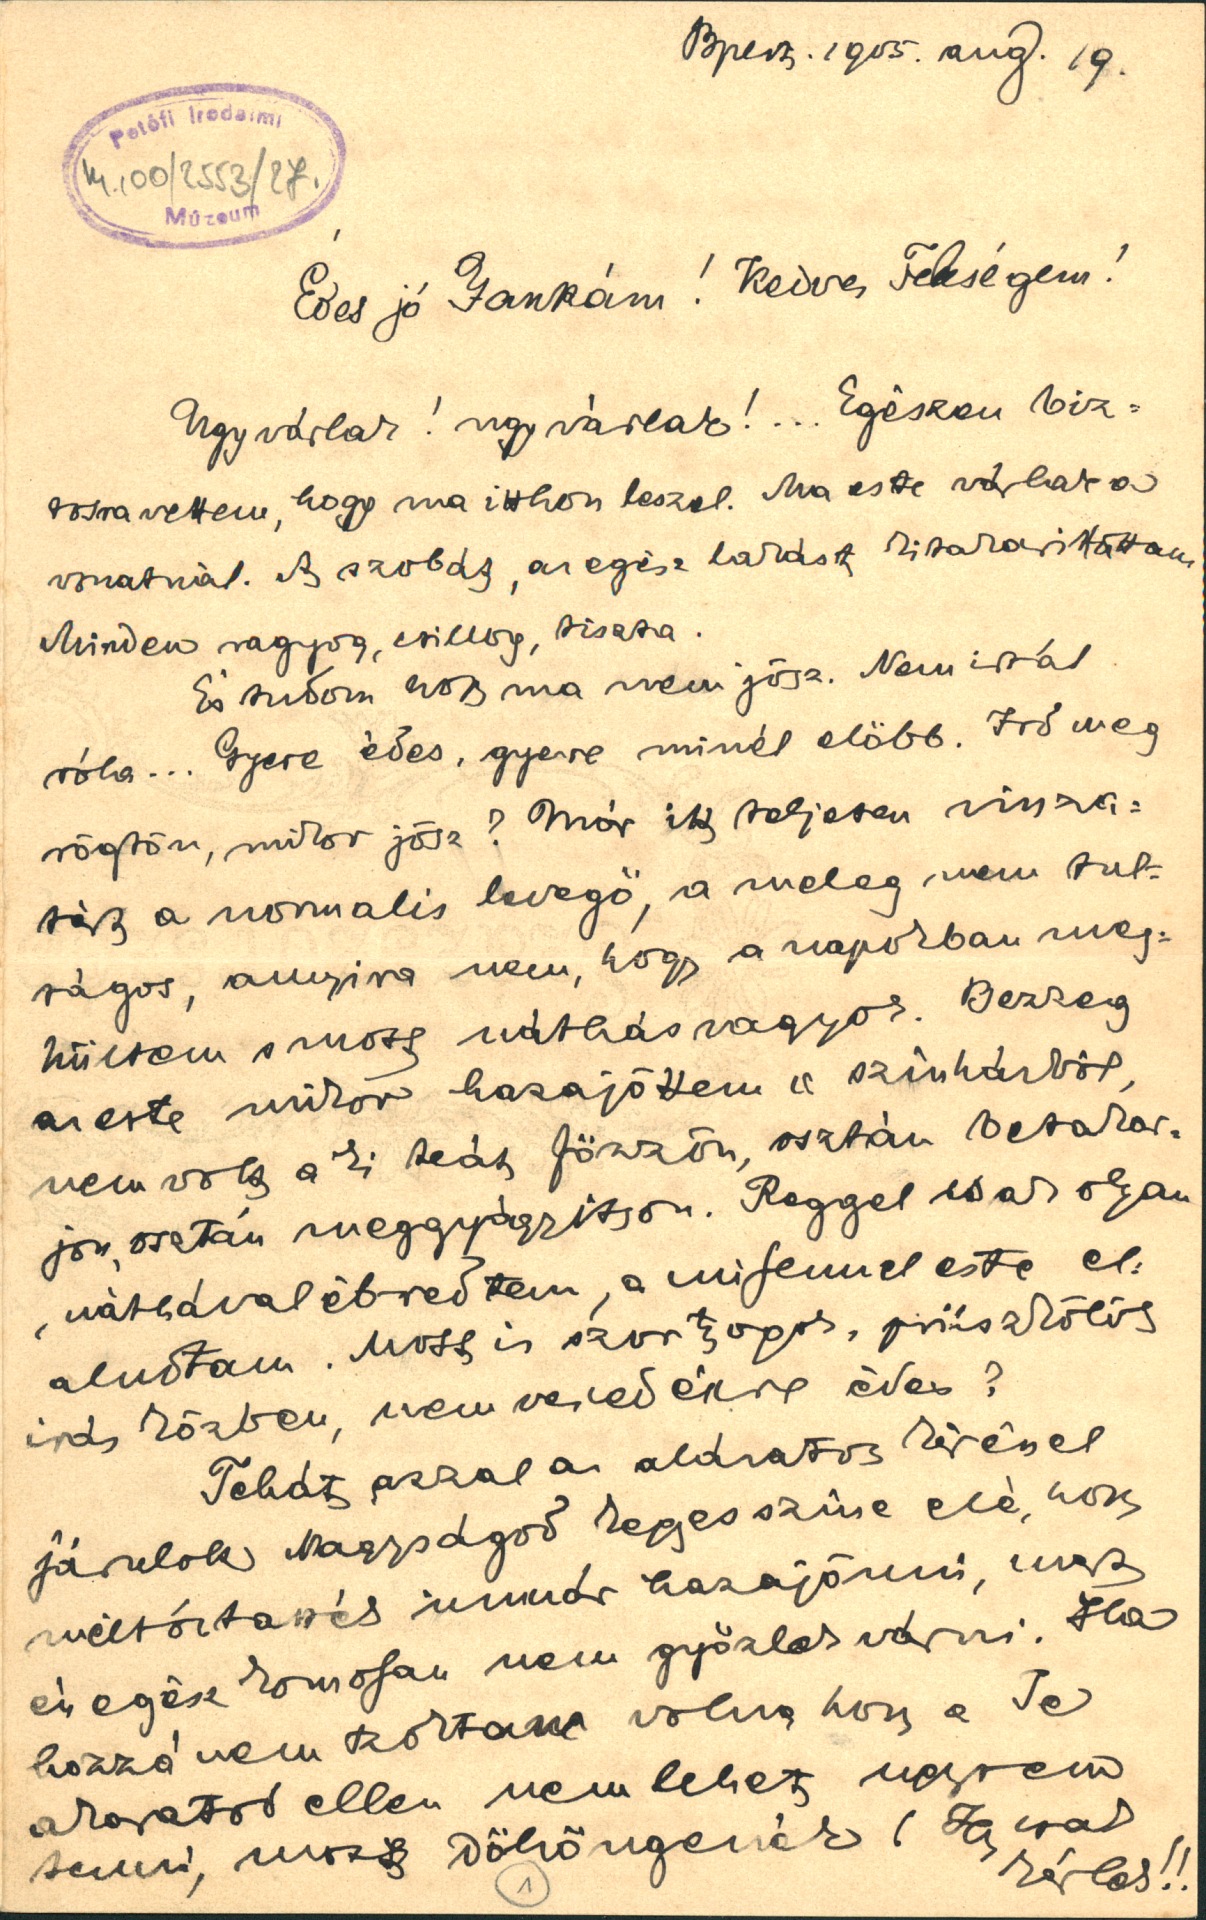 Bpest. 1905. aug. 19.
Petőfi Irodalmi
M.100/2553/27.
Múzeum
Édes jó Jankám! Kedves Feleségem!
Ugy várlak! ugy várlak! ... Egészen biz=
tosra vettem, hogy ma itthon leszel. Ma este várlak a
vonatnál. A szobát, az egész lakást kitakaríttattam
Minden ragyog, csillog, tiszta.
És tudom hogy ma nem jösz. Nem irtál
róla... Gyere édes, gyere minél elöbb. Ird meg
rögtön, mikor jösz? Már itt teljesen vissza=
tért a normalis levegö, a meleg nem tul=
ságos, annyira nem, hogy a napokban meg=
hültem s most náthás vagyok. Bezzeg
az este mikor hazajöttem a szinházból,
nem volt a ki teát fözzön, osztán betakar=
jon, osztán meggyógyitson. Reggel csak olyan
náthával ébredtem, a milyennel este el=
aludtam. Most is szortyogok, prüszkölök
irás közben, nem veszed észre édes?
Tehát azzal az alázatos kéréssel
járulok Nagyságod kegyes szine elé, hogy
méltóztassék immár hazajönni, mert
én egész komolyan nem gyözlek várni. Ha
hozzá nem szoktam volna hogy a Te
akaratod ellen nem lehet ugysem
tenni, most dühöngenék! Igy csak
kérlek!!
1